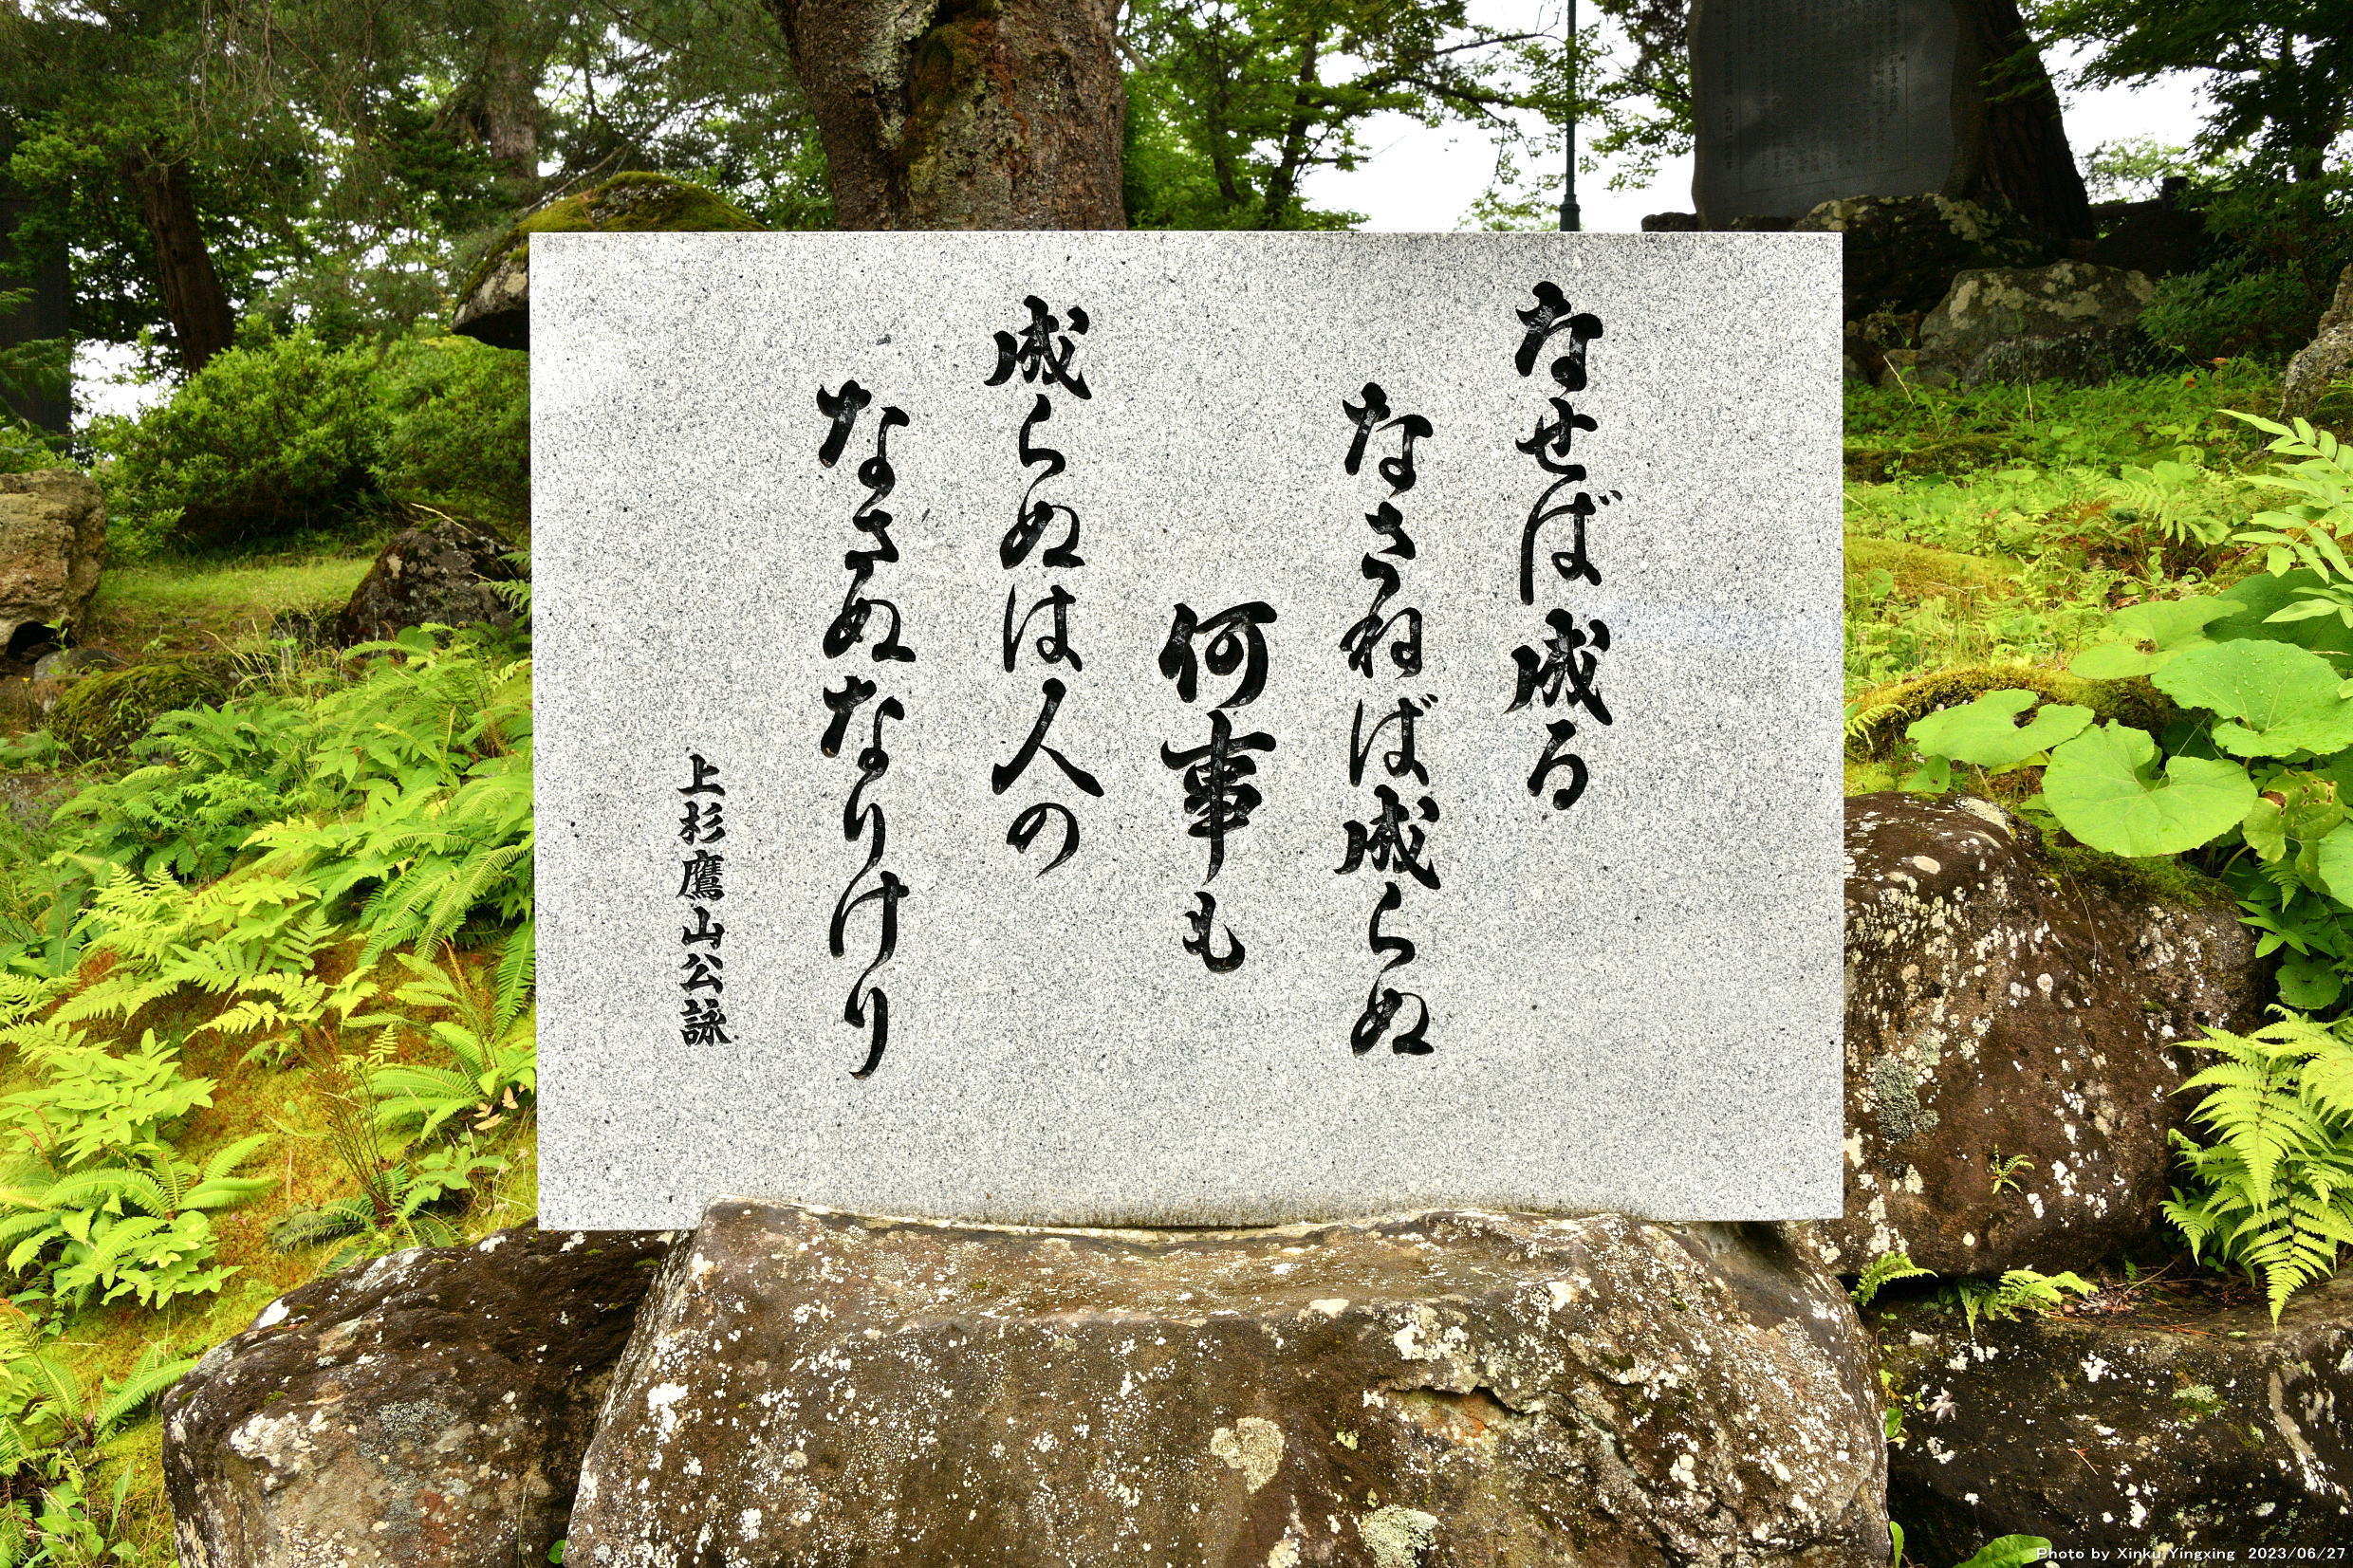 なせば成る
なさねば成らぬ
何事も
成らぬは人の
なさぬなりけり
上杉鷹山公詠
Photo by Xinku Yingxing 2023/06/27